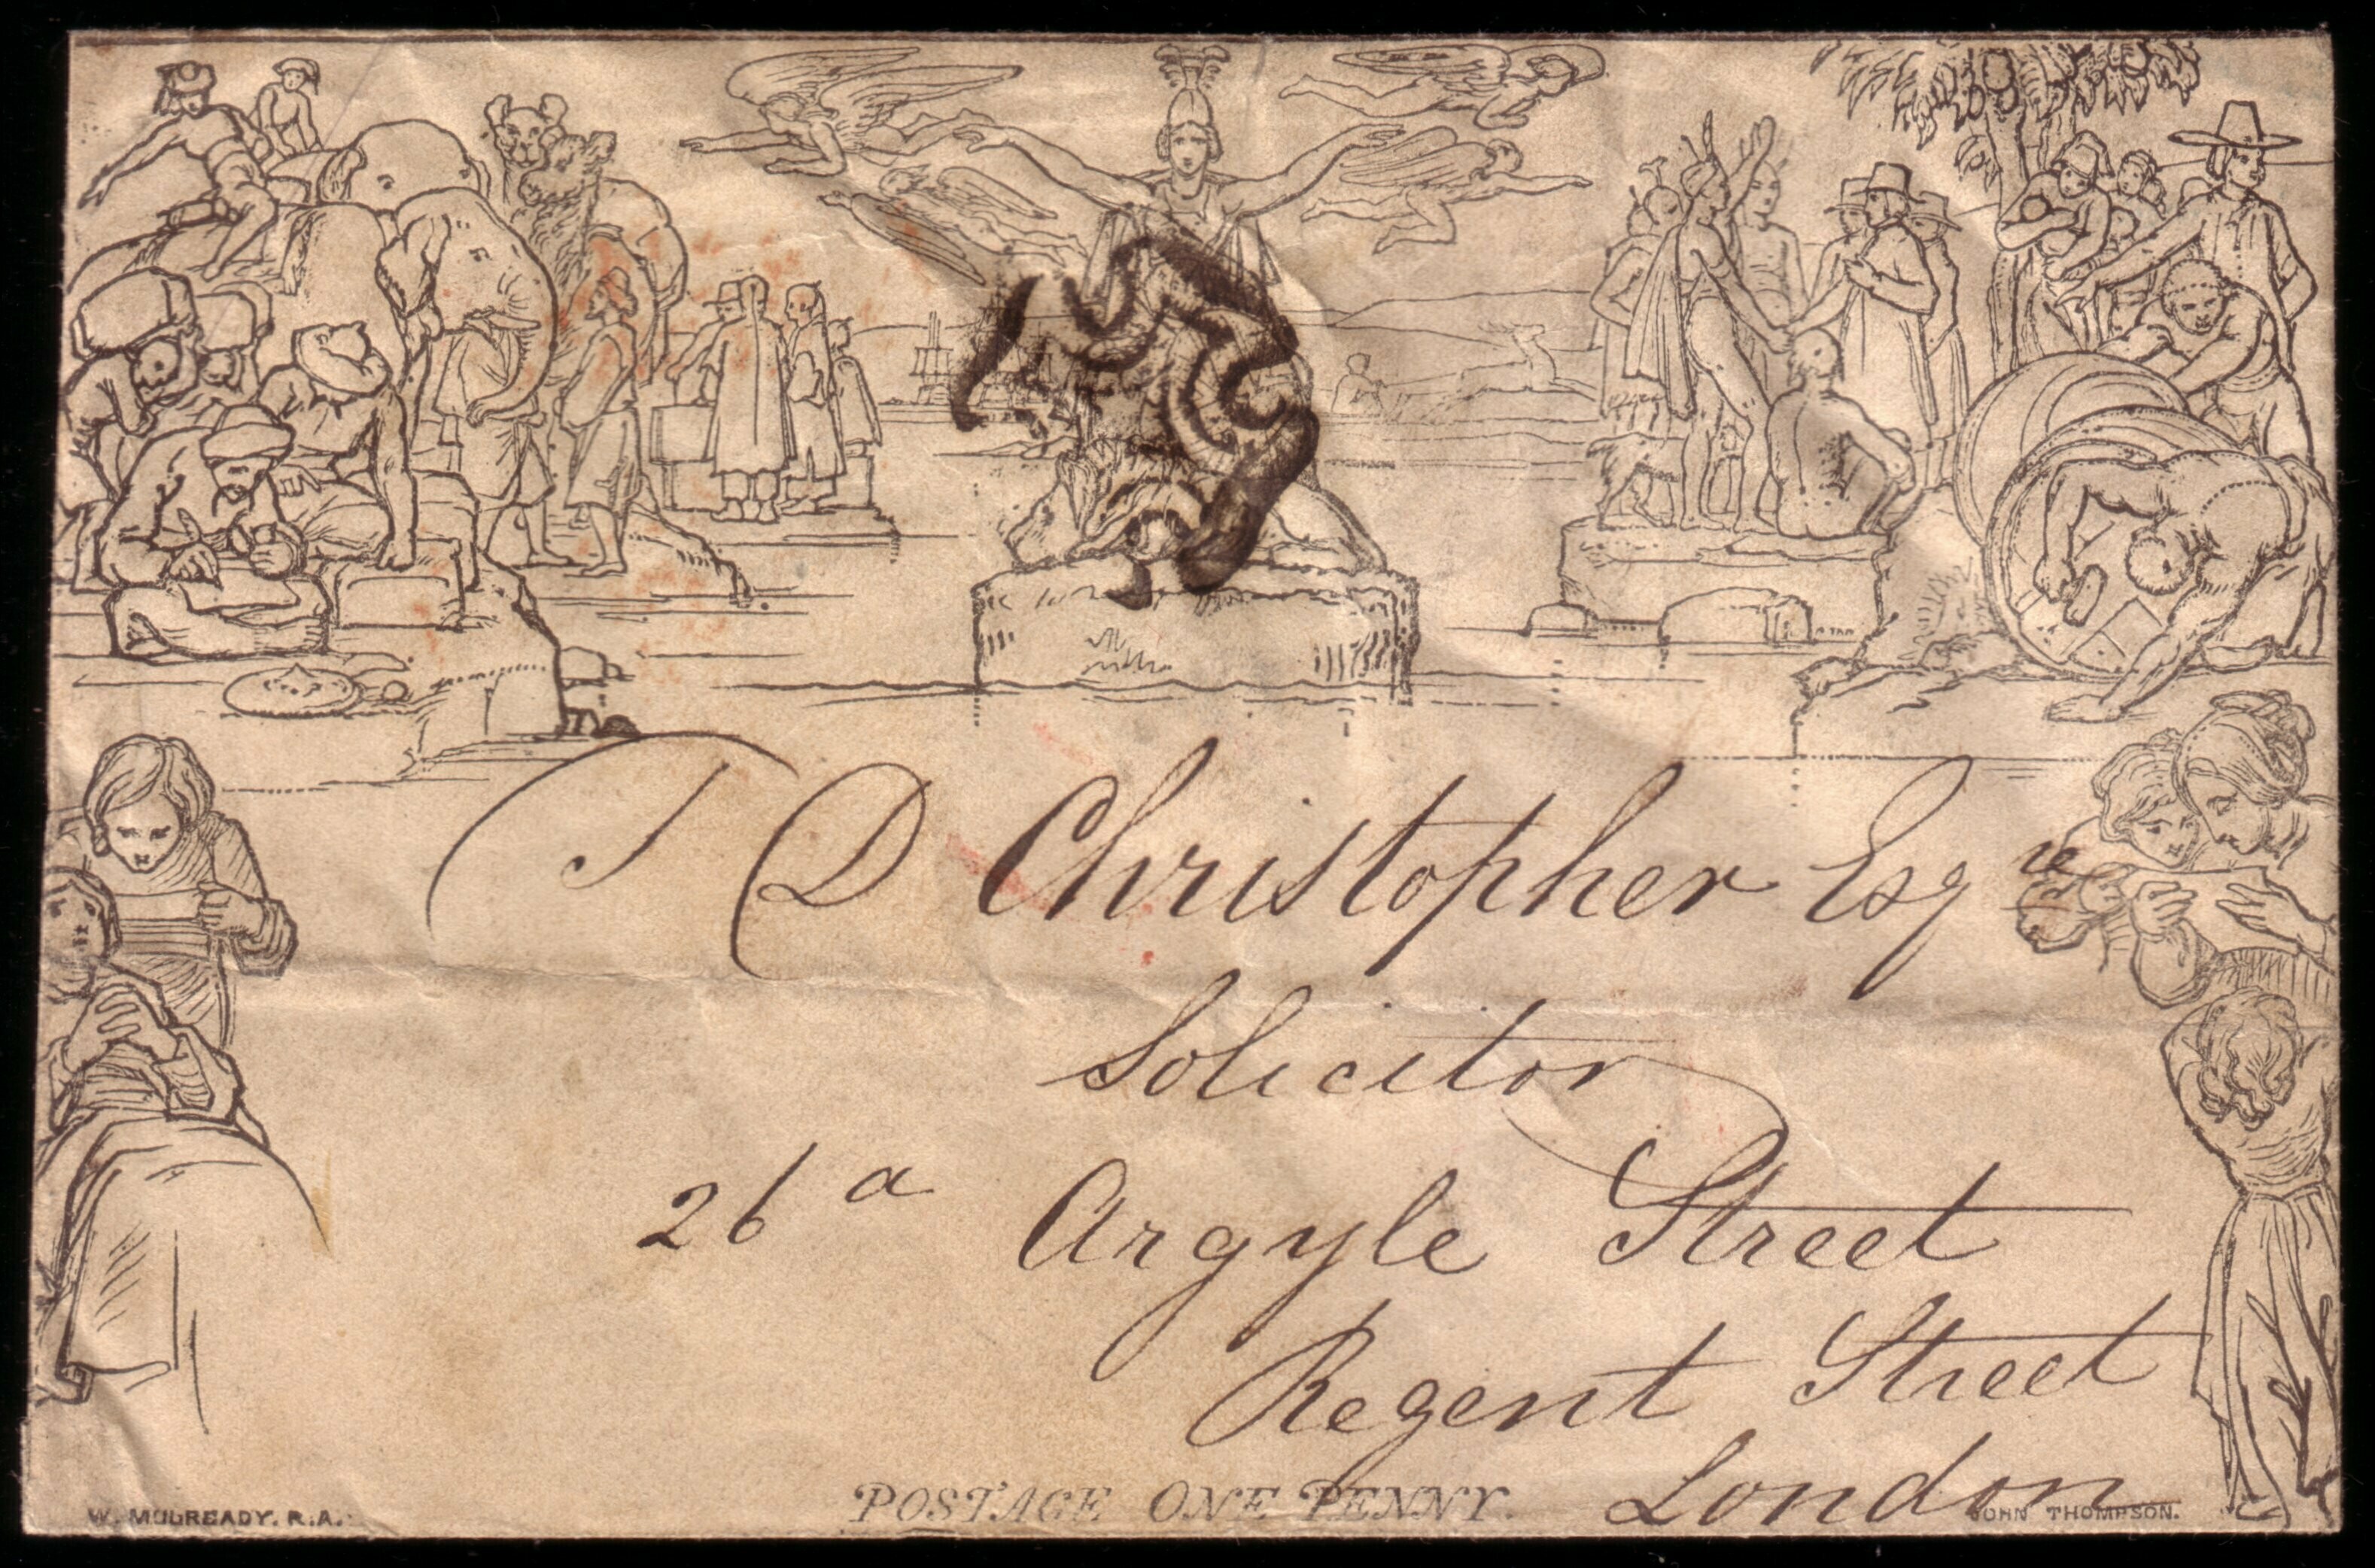 T D Christopher Esqre
Solicitor
26a Argyle Street
Regent Street
London
POSTAGE ONE PENNY.
W. MULREADY. R.A.
JOHN THOMPSON.